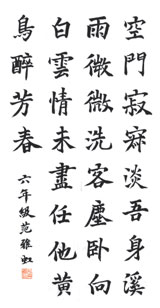 空門寂寂淡吾身溪
雨微微洗客塵臥向
白雲情未盡任他黄
鳥醉芳春
六年級范雅虹